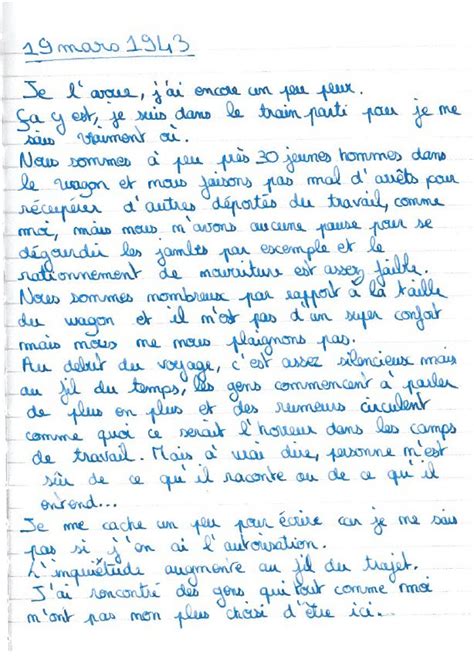 19 mars 1943
Je l'avoue, j'ai encore un peu peur.
Ça y est, je suis dans le train parti pour je ne
sais vraiment où.
Nous sommes à peu près 30 jeunes hommes dans
le wagon et nous faisons pas mal d'arrêts pour
récupérer d'autres déportés du travail, comme
moi, mais nous n'avons aucune pause pour se
dégourdir les jambes par exemple et le
rationnement de nourriture est assez faible.
Nous sommes nombreux par rapport à la taille
du wagon et il n'est pas d'un super confort
mais nous ne nous plaignons pas.
Au debut du voyage, c'est assez silencieux mais
au fil du temps, les gens commencent à parler
de plus en plus et des rumeurs circulent
comme quoi ce serait l'horreur dans les camps
de travail. Mais à vrai dire, personne n'est
sûr de ce qu'il raconte ou de ce qu'il
entend...
Je me cache un peu pour écrire car je ne sais
pas si j'en ai l'autorisation.
L'inquiétude augmente au fil du trajet.
J'ai rencontré des gens qui tout comme moi
n'ont pas non plus choisi d'être ici...